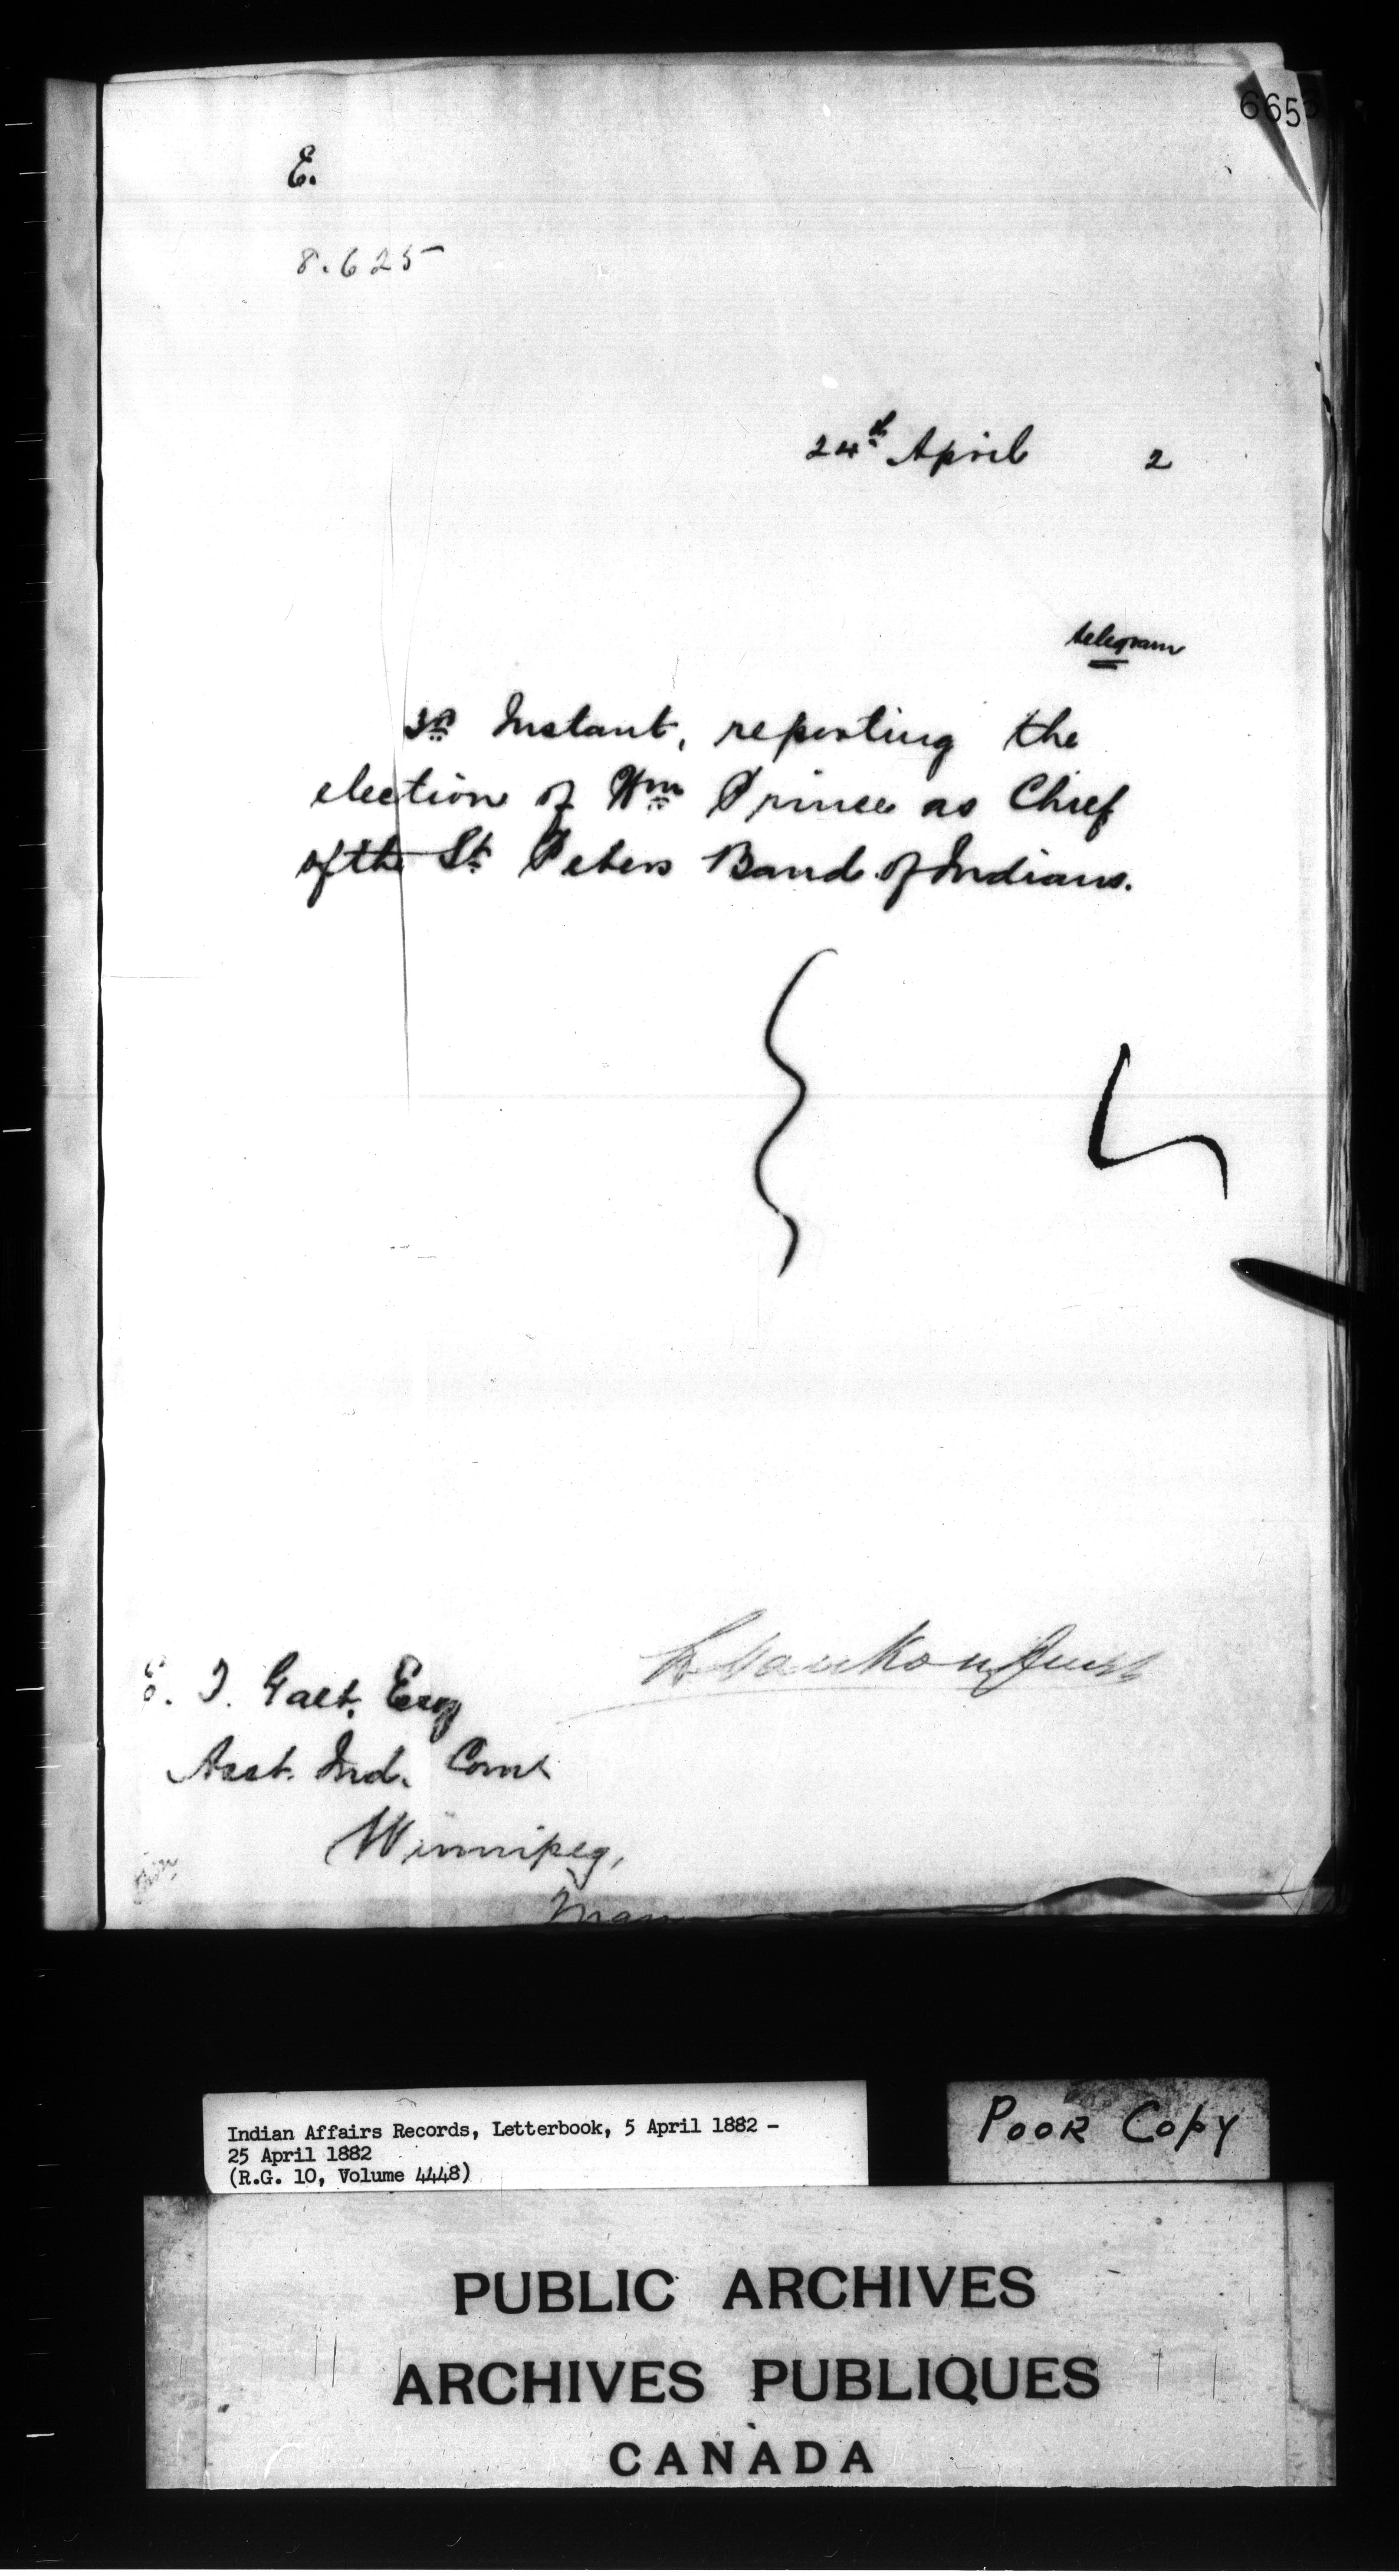 665
E.
8.625
24th April 2
telegram
3rd Instant, reporting the
election of Wm Prince as Chief
of the St Peters Band of Indians.
L. Vankoughnet
E. T. Galt, Esq
Asst. Ind. Comr
Winnipeg,
Man
Indian Affairs Records, Letterbook, 5 April 1882 -
25 April 1882
(R.G. 10, Volume 4448)
POOR COPY
PUBLIC ARCHIVES
ARCHIVES PUBLIQUES
CANADA